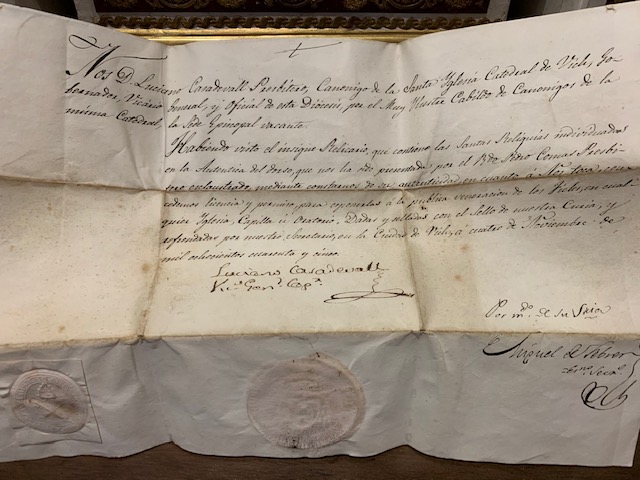 Nos D. Luciano Casadevall Presbítero, Canonigo de la Santa Iglesia Catedral de Vich, Go-
bernador, Vicario General, y Oficial de esta Diócesis, por el Muy Ilustre Cabildo de Canonigos de la
misma Catedral, la Sede Episcopal vacante.
Habiendo visto el insigne Relicario, que contiene las Santas Reliquias individuadas
en la Autentica del dorso, que nos ha sido presentada por el Rdo Pedro Comas Presbi-
tero exclaustrado mediante constarnos de su autenticidad en cuanto á Nos toca, con-
cedemos licencia y permiso, para exponerlas á la publica veneracion de los fieles, en cual-
quier Iglesia, Capilla ú Oratorio. Dadas y selladas con el Sello de nuestra Curia, y
refrendadas por nuestro Secretario, en la Ciudad de Vich, á cuatro de Noviembre de
mil ochocientos cuarenta y cinco.
Luciano Casadevall
Vico Genl Capr
Por mdo de su Sría
Miguel
Secro